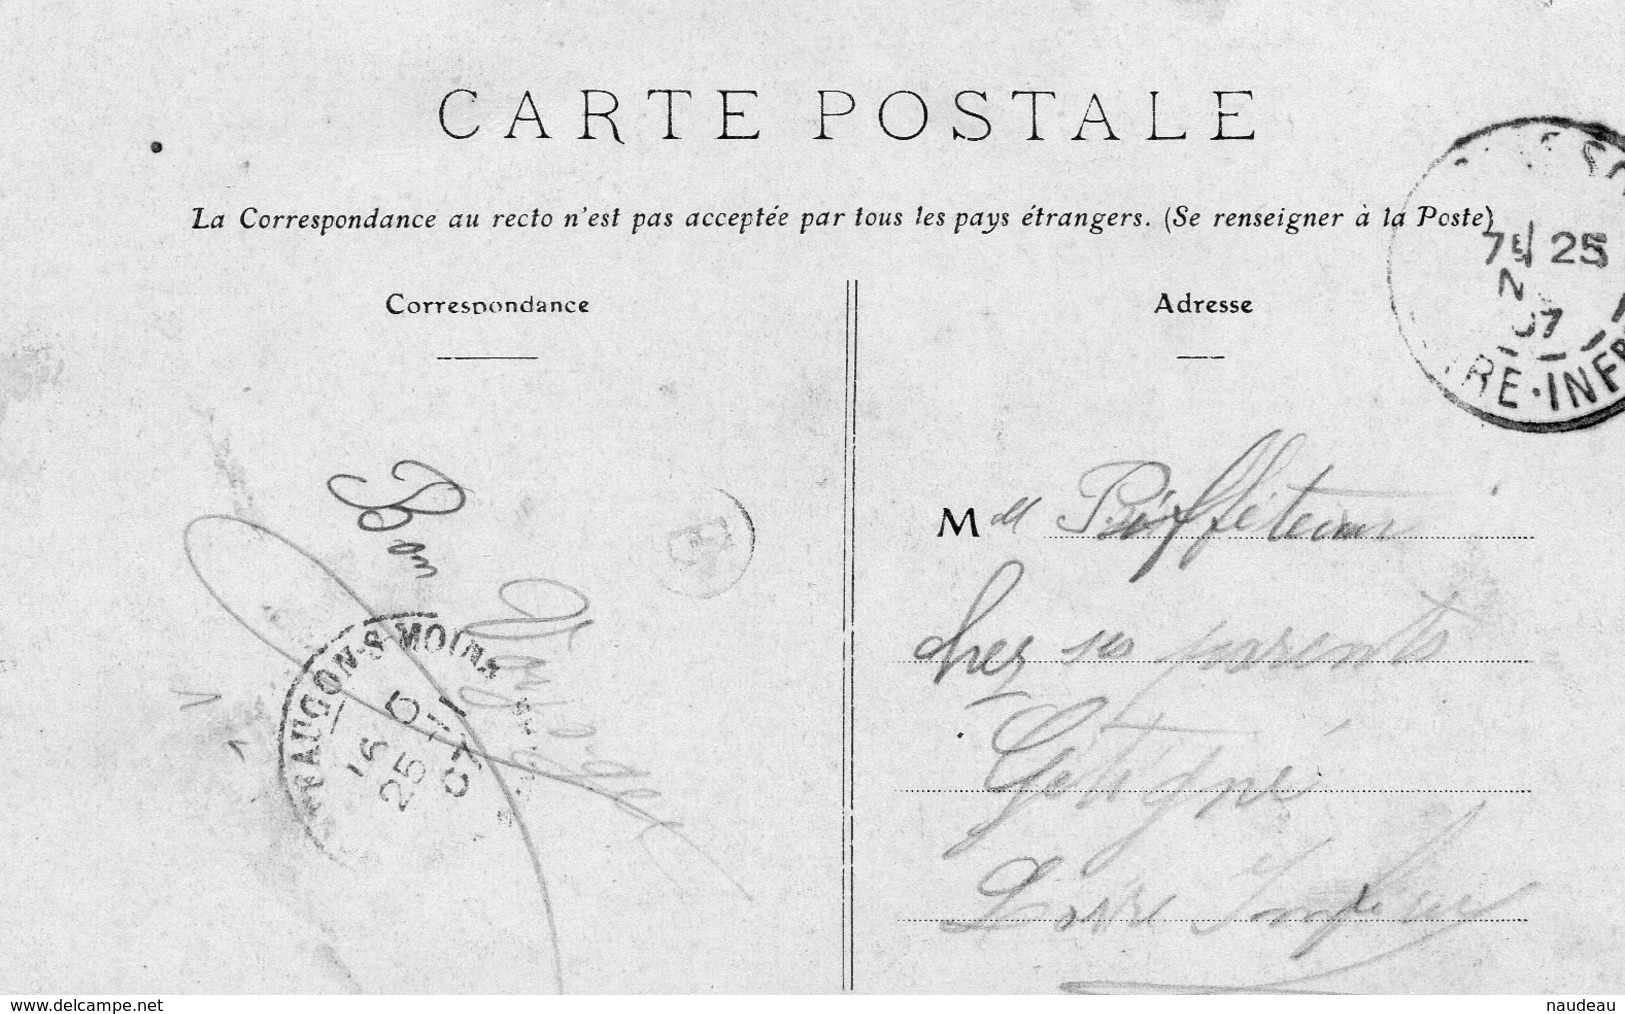 CARTE POSTALE
La Correspondance au recto n'est pas acceptée par tous les pays étrangers. (Se renseigner à la Poste)
Correspondance
Adresse
7E 25
N
07
IRE·INFRE
Bon
MOINE
16 5
25 11
07
Mlle Piffeteau
chez ses parents
Gétigné
Loire Inférieure
www.delcampe.net
naudeau